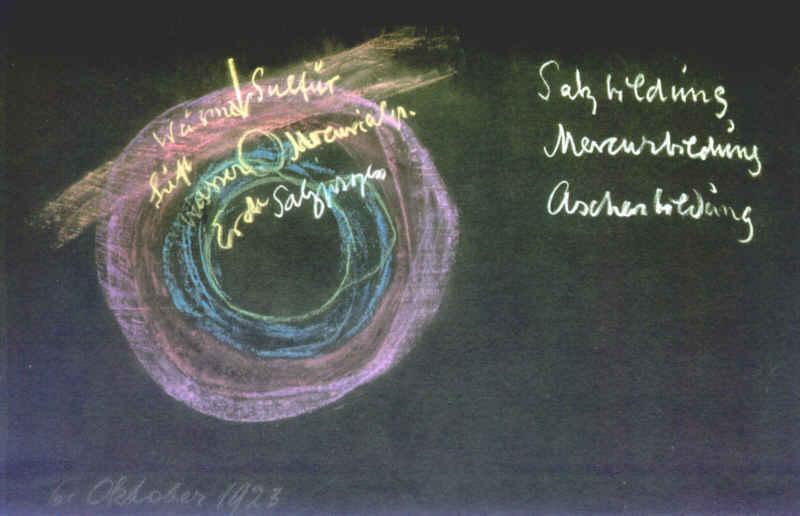 Wärme Sulfur
Luft Mercurialp.
Wasser
Erde Salzprozess
Salzbildung
Mercurbildung
Aschenbildung
6. Oktober 1923